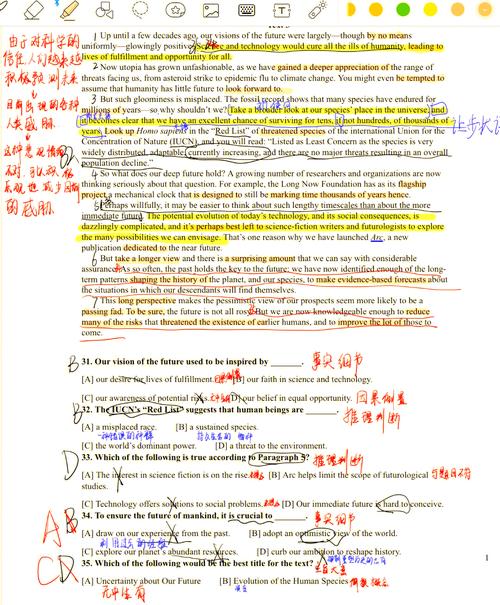 1 Up until a few decades ago, our visions of the future were largely—though by no means
uniformly—glowingly positive. Science and technology would cure all the ills of humanity, leading to
lives of fulfillment and opportunity for all.
2 Now utopia has grown unfashionable, as we have gained a deeper appreciation of the range of
threats facing us, from asteroid strike to epidemic flu to climate change. You might even be tempted to
assume that humanity has little future to look forward to.
3 But such gloominess is misplaced. The fossil record shows that many species have endured for
millions of years—so why shouldn't we? Take a broader look at our species' place in the universe, and
it becomes clear that we have an excellent chance of surviving for tens, if not hundreds, of thousands of
years. Look up Homo sapiens in the “Red List” of threatened species of the international Union for the
Concentration of Nature (IUCN), and you will read: “Listed as Least Concern as the species is very
widely distributed, adaptable, currently increasing, and there are no major threats resulting in an overall
population decline.”
4 So what does our deep future hold? A growing number of researchers and organizations are now
thinking seriously about that question. For example, the Long Now Foundation has as its flagship
project a mechanical clock that is designed to still be marking time thousands of years hence.
5 Perhaps willfully, it may be easier to think about such lengthy timescales than about the more
immediate future. The potential evolution of today's technology, and its social consequences, is
dazzlingly complicated, and it's perhaps best left to science-fiction writers and futurologists to explore
the many possibilities we can envisage. That's one reason why we have launched Arc, a new
publication dedicated to the near future.
6 But take a longer view and there is a surprising amount that we can say with considerable
assurance. As so often, the past holds the key to the future: we have now identified enough of the long-
term patterns shaping the history of the planet, and our species, to make evidence-based forecasts about
the situations in which our descendants will find themselves.
7 This long perspective makes the pessimistic view of our prospects seem more likely to be a
passing fad. To be sure, the future is not all rosy. But we are now knowledgeable enough to reduce
many of the risks that threatened the existence of earlier humans, and to improve the lot of those to
come.
B 31. Our vision of the future used to be inspired by ______. 事实细节
[A] our desire for lives of fulfillment. 因果倒置 [B] our faith in science and technology.
[C] our awareness of potential risks. [D] our belief in equal opportunity. 因果倒置
B 32. The IUCN's “Red List” suggests that human beings are ______. 推理判断
[A] a misplaced race. [B] a sustained species.
[C] the world's dominant power. [D] a threat to the environment.
D 33. Which of the following is true according to Paragraph 5? 推理判断
[A] The interest in science fiction is on the rise. [B] Arc helps limit the scope of futurological
studies.
[C] Technology offers solutions to social problems. [D] Our immediate future is hard to conceive.
34. To ensure the future of mankind, it is crucial to ______. 事实细节
[A] draw on our experience from the past. [B] adopt an optimistic view of the world.
[C] explore our planet's abundant resources. [D] curb our ambition to reshape history.
35. Which of the following would be the best title for the text?
[A] Uncertainty about Our Future [B] Evolution of the Human Species
无中生有
1